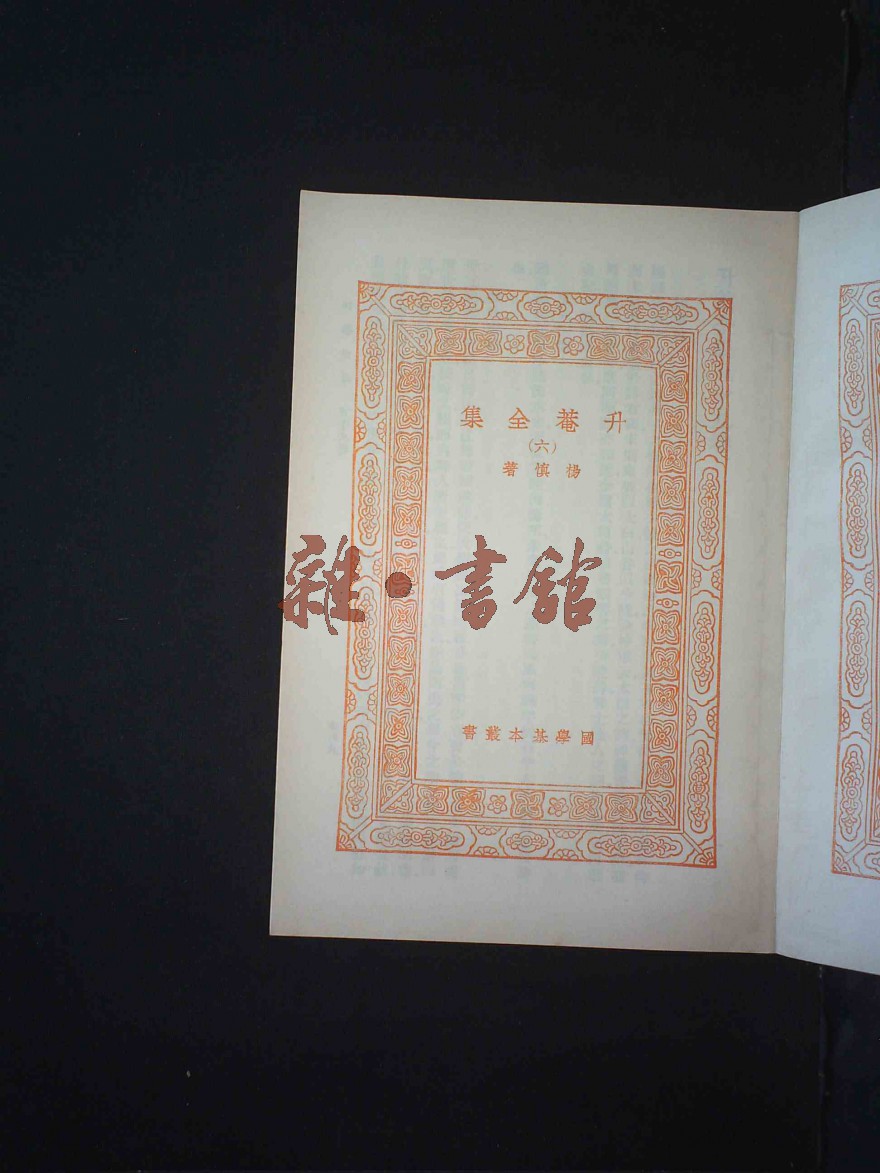 升菴全集
(六)
楊慎著
雜·書館
國學基本叢書